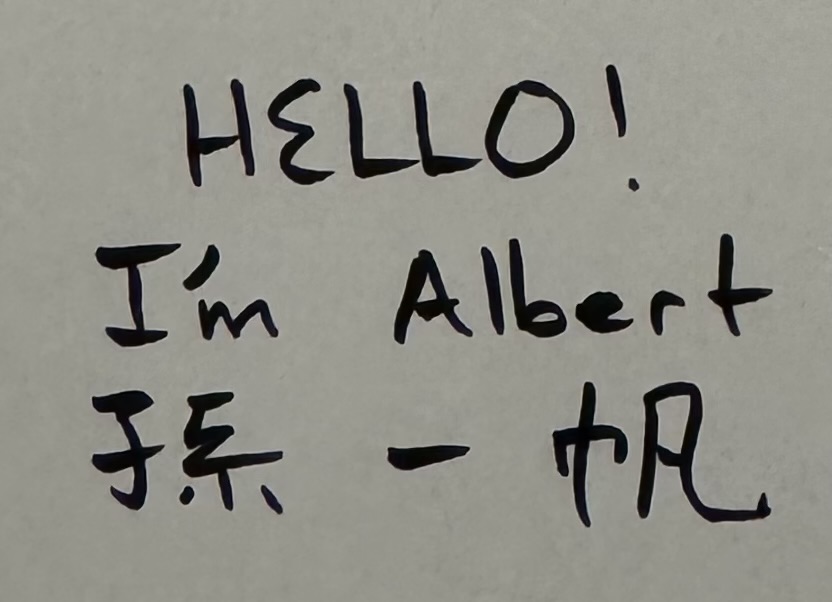 HELLO!
I'm Albert
孫一帆